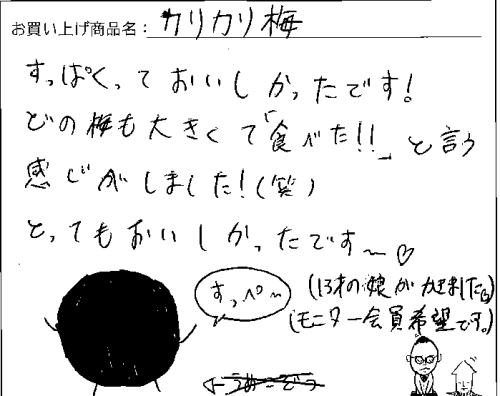 お買い上げ商品名：カリカリ梅
すっぱくっておいしかったです！
どの梅も大きくて「食べた!!」と言う
感じがしました！（笑）
とってもおいしかったです〜♡
すっぺ〜
（13才の娘がかきました）
（モニター会員希望です。）